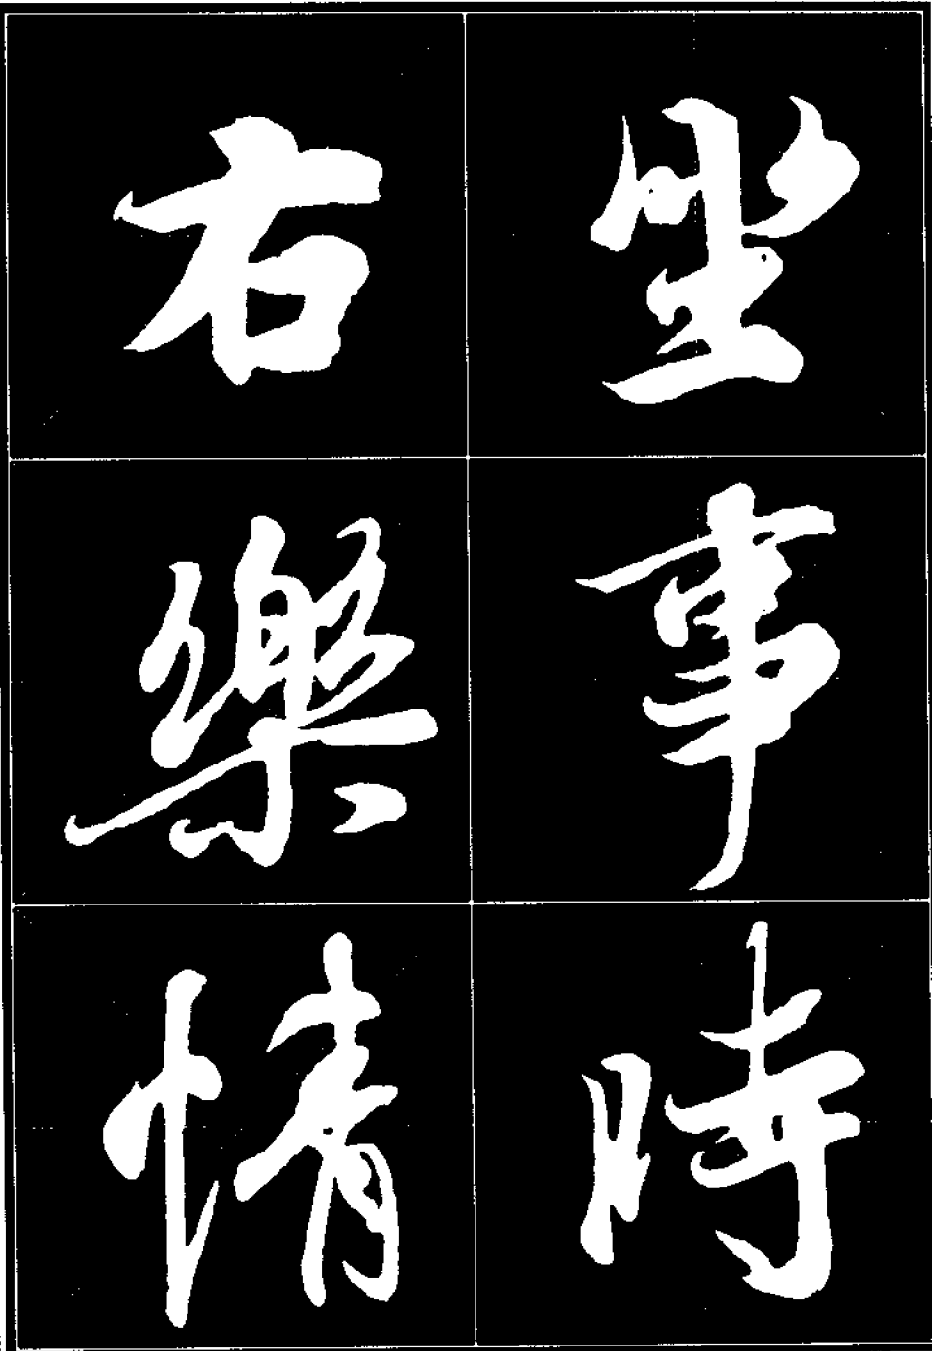 坐事時
右樂情